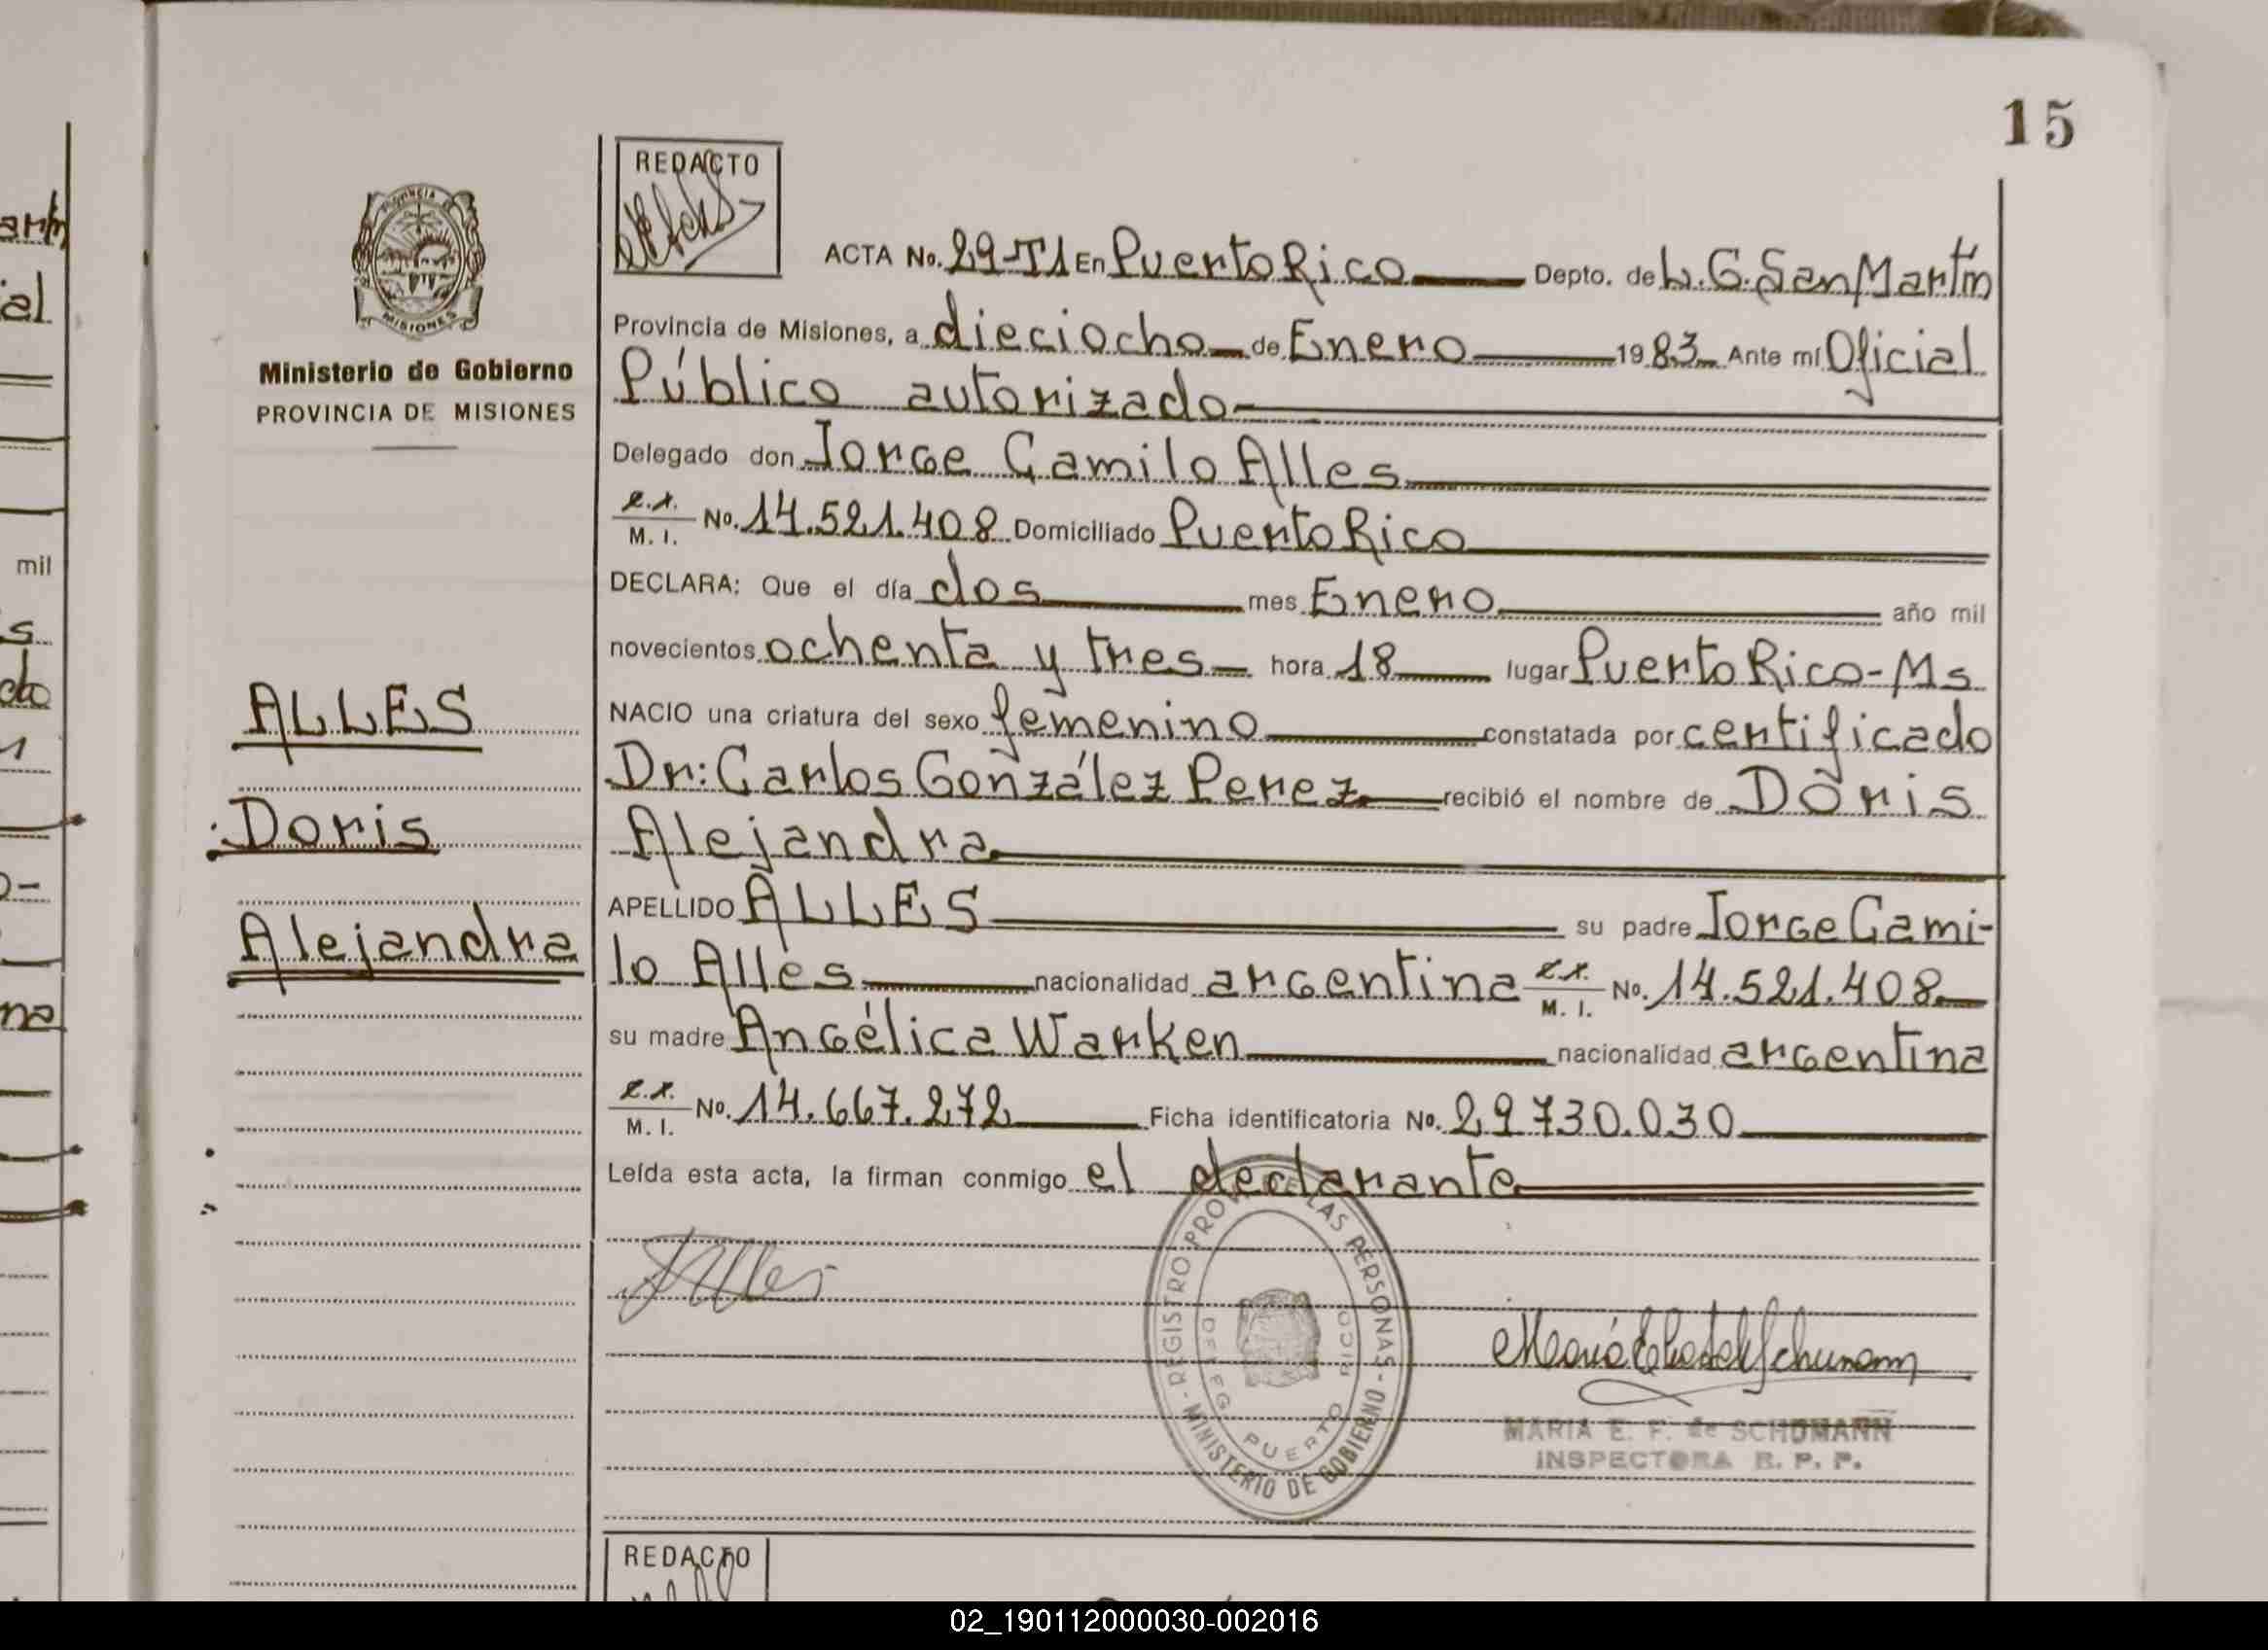 15
REDACTO
ACTA No. 29-T1 En Puerto Rico Depto. de L. G. San Martín
Provincia de Misiones, a dieciocho de Enero 1983 Ante mí Oficial
Público autorizado
Delegado don Jorge Camilo Alles
M. I. No. 14.521.408 Domiciliado Puerto Rico
DECLARA: Que el día dos mes Enero año mil
novecientos ochenta y tres hora 18 lugar Puerto Rico-Ms
NACIO una criatura del sexo femenino constatada por certificado
Dr: Carlos González Perez recibió el nombre de Doris
Alejandra
APELLIDO ALLES su padre Jorge Cami-
lo Alles nacionalidad argentina M. I. No. 14.521.408
su madre Angélica Warken nacionalidad argentina
M. I. No. 14.667.272 Ficha identificatoria No. 29730.030
Leída esta acta, la firman conmigo el declarante
PROVINCIA DE
MISIONES
Ministerio de Gobierno
PROVINCIA DE MISIONES
ALLES
Doris
Alejandra
arín
ial
mil
s
do
na
REGISTRO PROV. DE LAS PERSONAS - MINISTERIO DE GOBIERNO -
DELEG. PUERTO RICO
MARIA E. F. de SCHUMANN
INSPECTORA R. P. P.
REDACTO
02_190112000030-002016